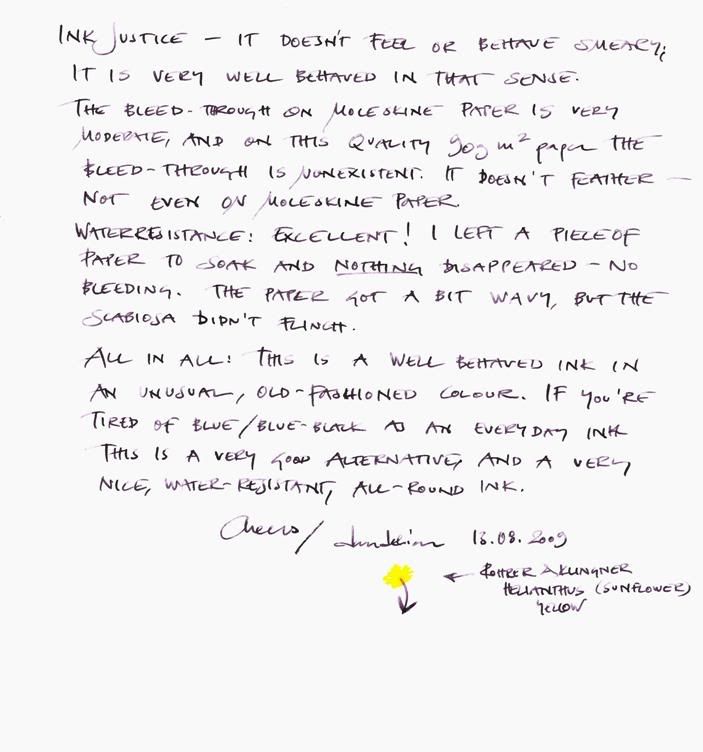 INK JUSTICE – IT DOESN'T FEEL OR BEHAVE SMEARY;
IT IS VERY WELL BEHAVED IN THAT SENSE.
THE BLEED-THROUGH ON MOLESKINE PAPER IS VERY
MODERATE, AND ON THIS QUALITY 90g m² paper THE
BLEED-THROUGH IS NONEXISTENT. IT DOESN'T FEATHER –
NOT EVEN ON MOLESKINE PAPER.
WATERRESISTANCE: EXCELLENT! I LEFT A PIECE OF
PAPER TO SOAK AND NOTHING DISAPPEARED – NO
BLEEDING. THE PAPER GOT A BIT WAVY, BUT THE
SCABIOSA DIDN'T FLINCH.
ALL IN ALL: THIS IS A WELL BEHAVED INK IN
AN UNUSUAL, OLD-FASHIONED COLOUR. IF YOU'RE
TIRED OF BLUE/BLUE-BLACK AS AN EVERYDAY INK
THIS IS A VERY GOOD ALTERNATIVE, AND A VERY
NICE, WATER-RESISTANT, ALL-ROUND INK.
Cheers/ 13.08.2009
ROHRER & KLINGNER
HELIANTHUS (SUNFLOWER)
YELLOW